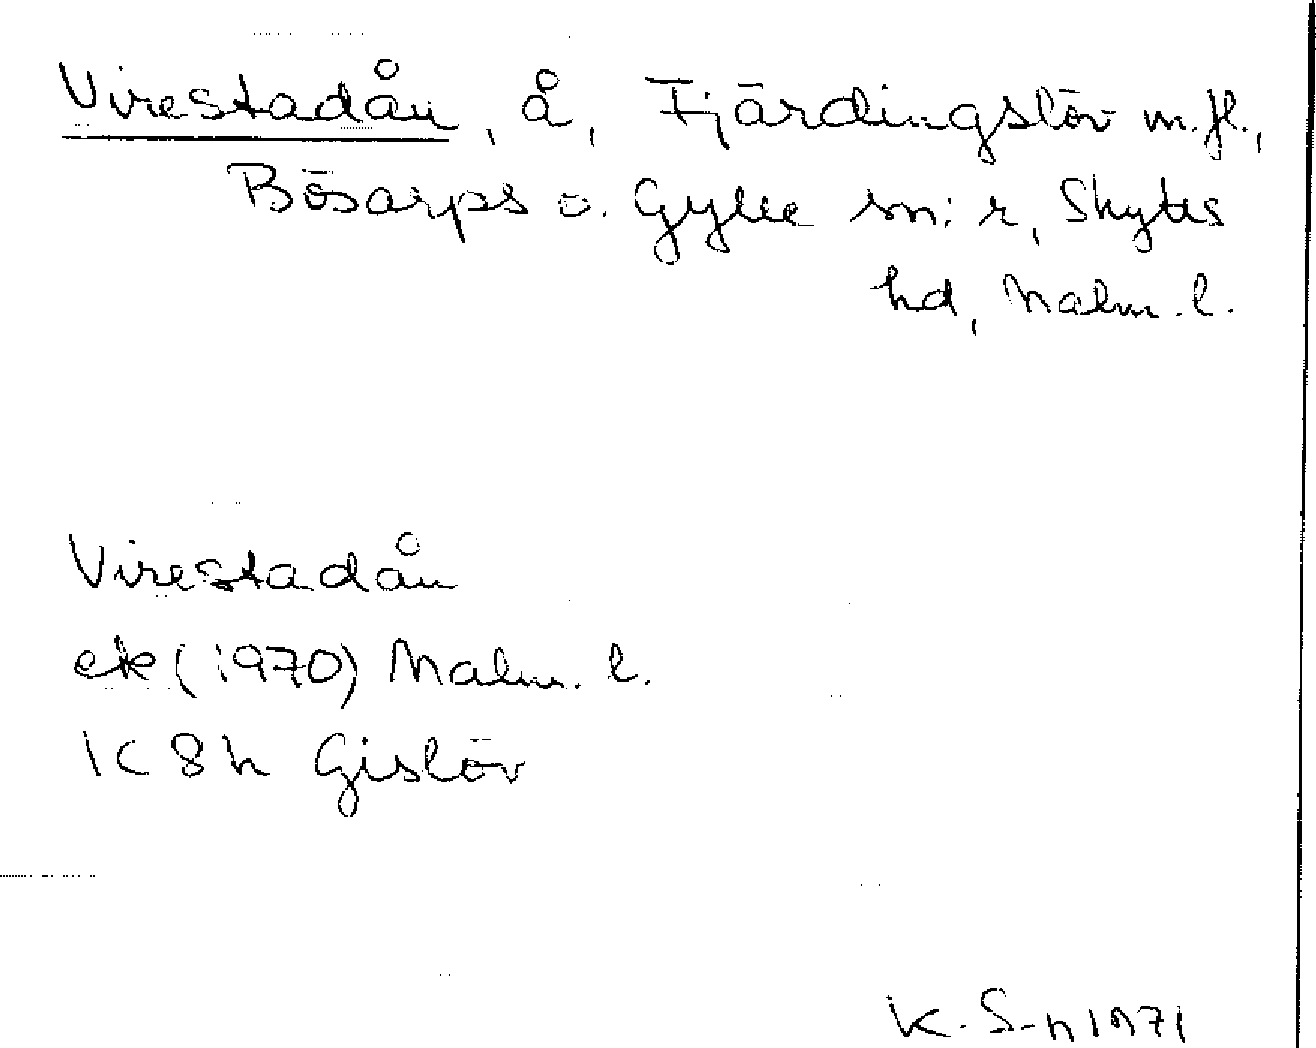 Virestadån, å, Fjärdingslöv m.fl.,
Bösarps o. Gylle sn:r, Skytts
hd, Malm. l.
Virestadån
ek (1970) Malm. l.
1C 8h Gislöv
K. S-n 1971